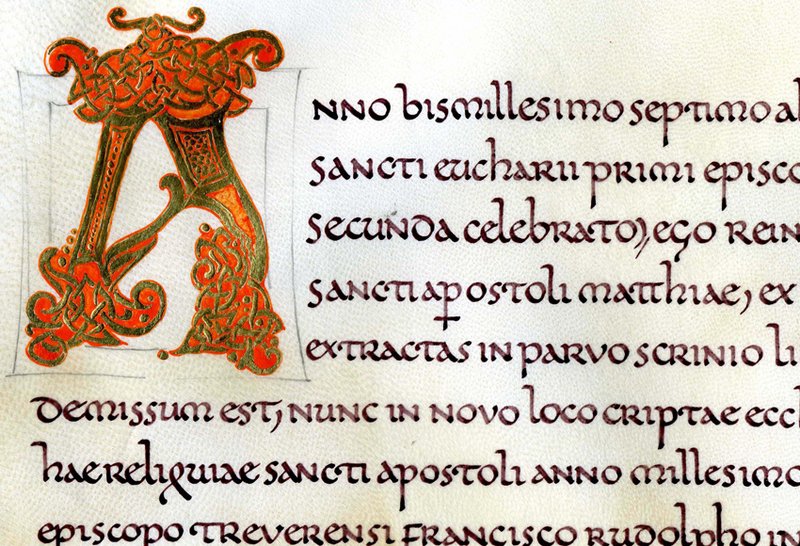 ANNO bismillesimo septimo al
sancti eucharii primi episco
secunda celebrato, ego rein
sancti apostoli matthiae, ex
extractas in parvo scrinio li
demissum est, nunc in novo loco criptae eccl
hae reliquiae sancti apostoli anno millesimo
episcopo treverensi francisco rudolpho in